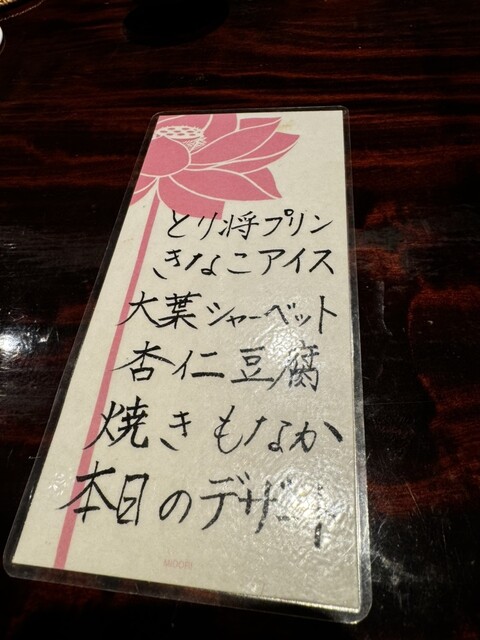 とり将プリン
きなこアイス
大葉シャーベット
杏仁豆腐
焼きもなか
本日のデザート
MIDORI